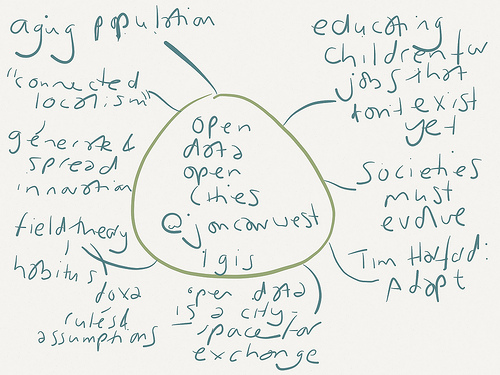 aging population
"connected
localism"
generate &
spread
innovation
field theory
habitus
doxa
rules &
assumptions
open
data
open
cities
@joncarwest
lgis
educating
children for
jobs that
dont exist
yet
societies
must
evolve
Tim Harford:
Adapt
open data
is a city-
space for
exchange